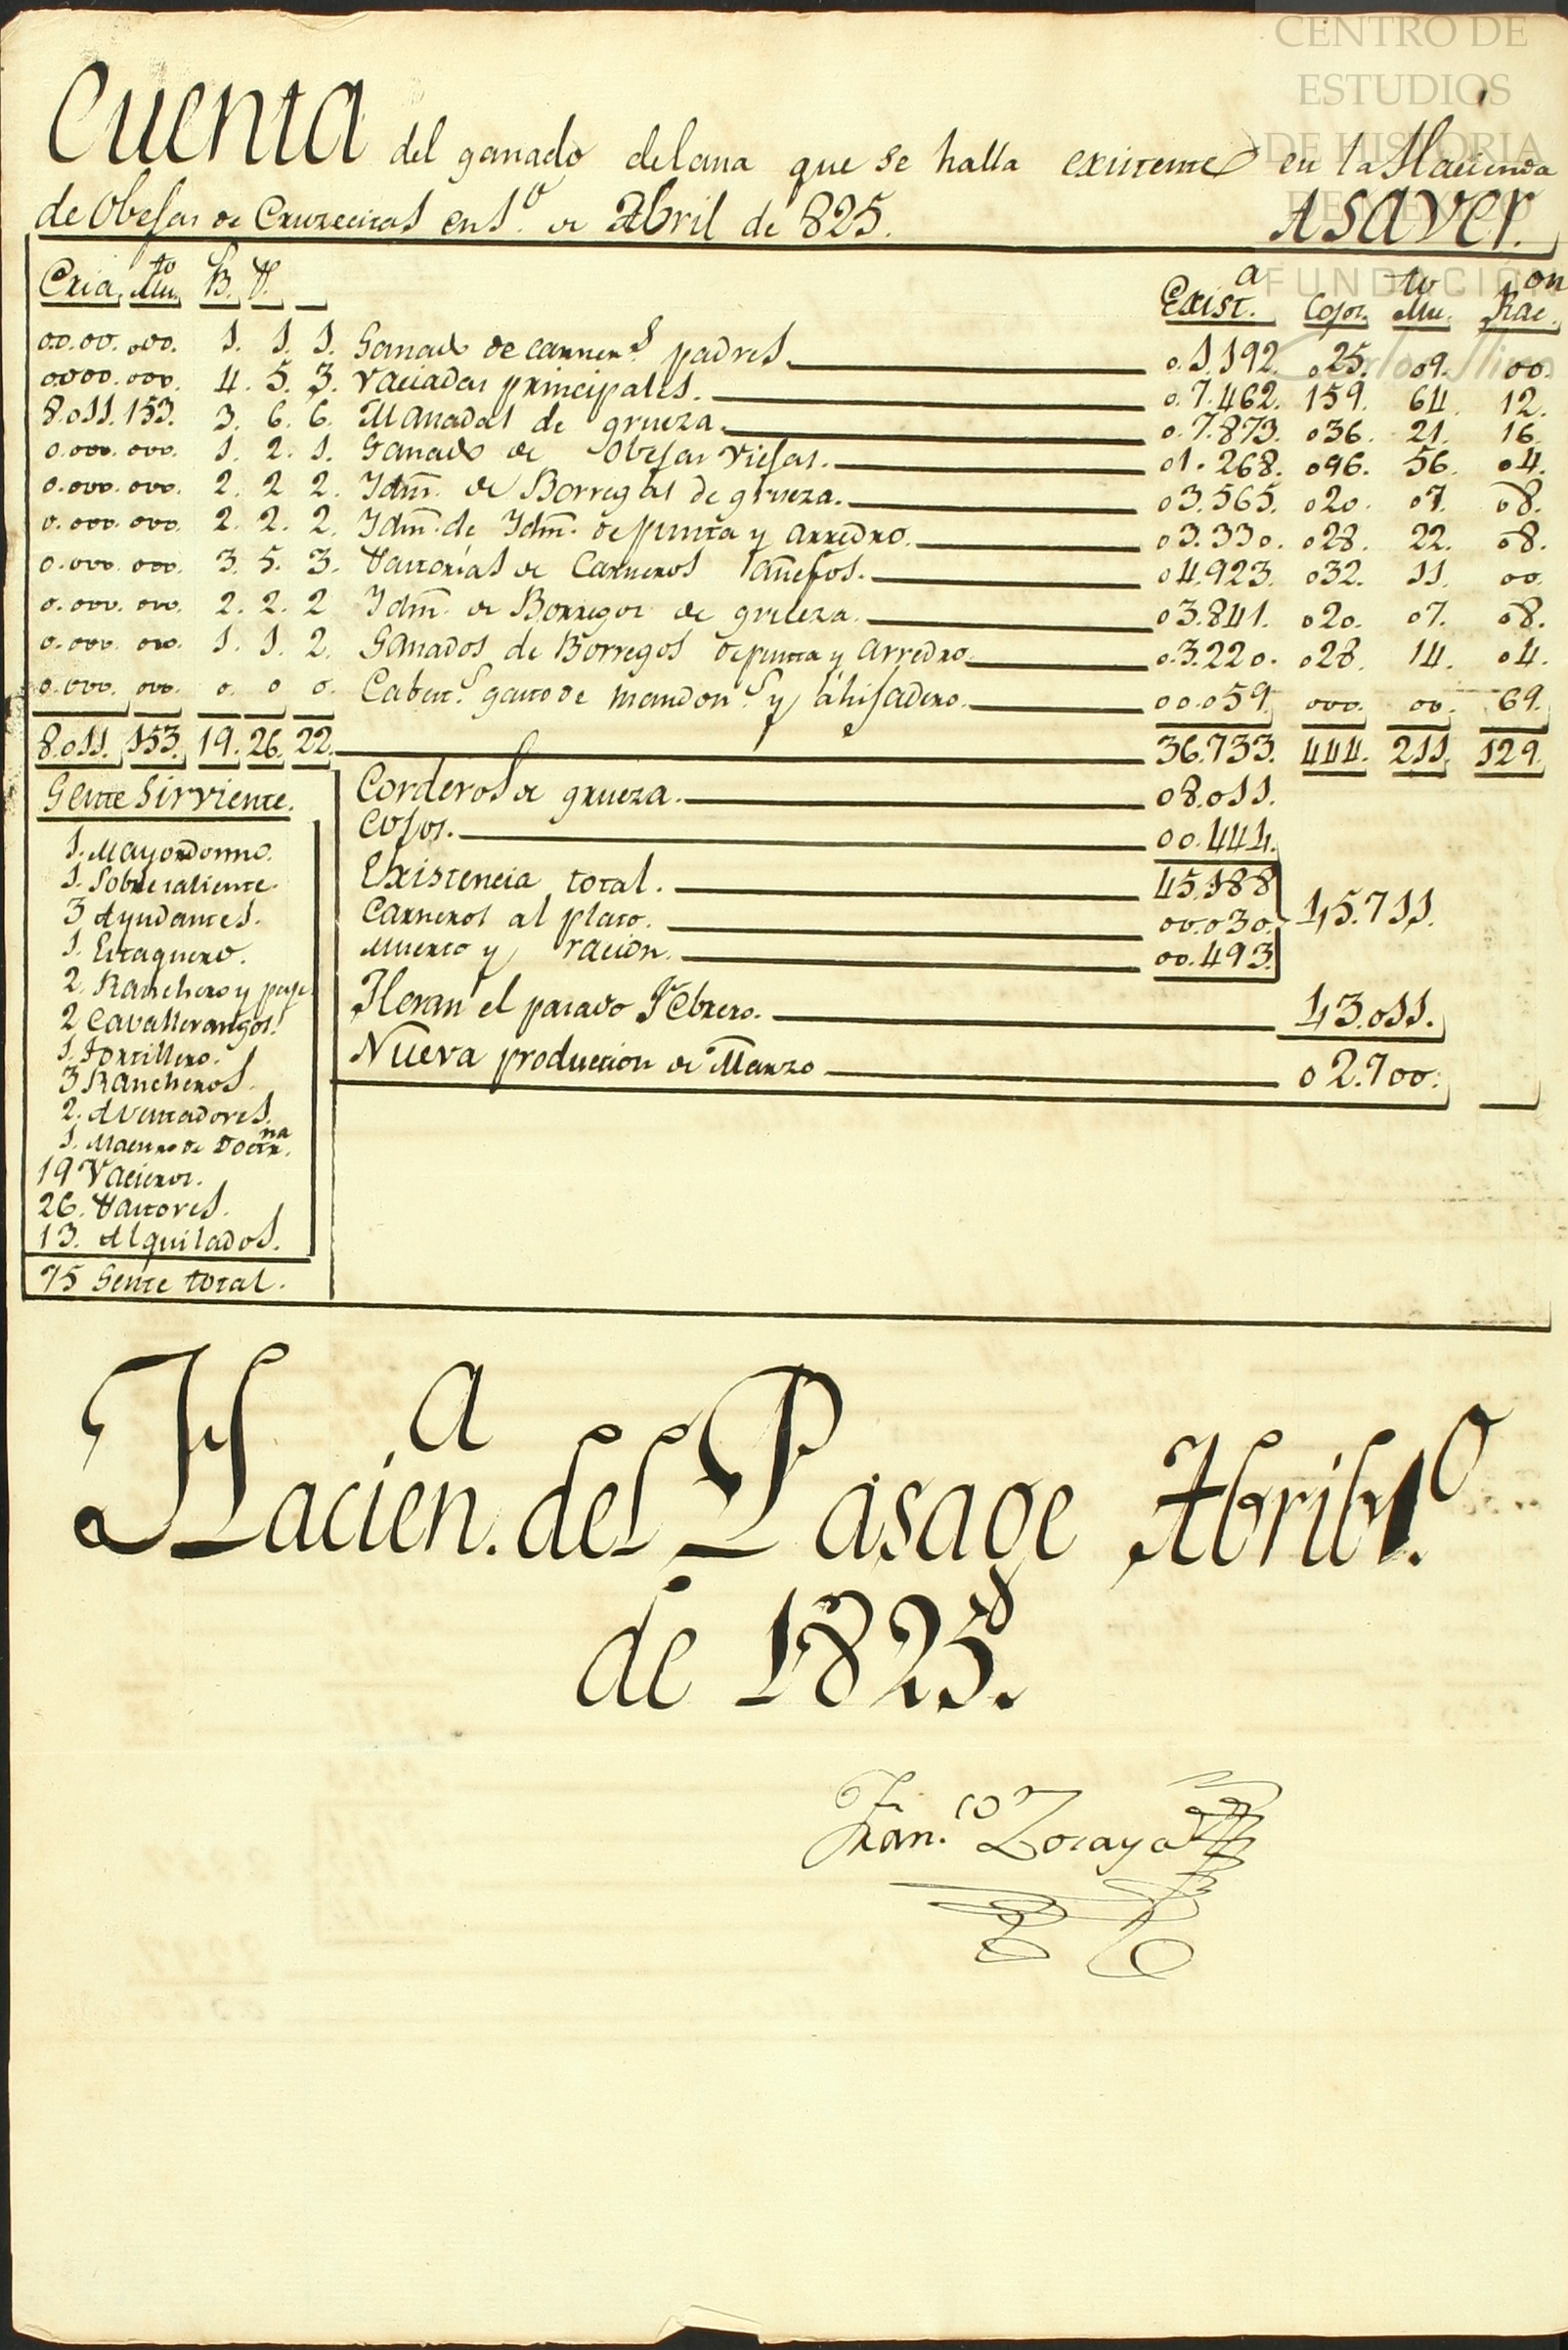 CENTRO DE
ESTUDIOS
DE HISTORIA
DE MEXICO
FUNDACIÓN
Carlos Slim
Cuenta del ganado delana que se halla existente en la Hacienda
de Obejas de Cruzecitas en 1.º de Abril de 825. ASAVER.
Cria. Mu.to B. P. Exist.a Cojos. Mu.to Rac.on
00.00. 000. 1. 1. 1. Ganado de carner.s padres 0.1.192. 025. 09. 00.
0000. 000. 4. 5. 3. Vaciadas principales. 0.7.462. 159. 64. 12.
8.011. 153. 3. 6. 6. Manadas de grueza. 0.7.873. 036. 21. 16.
0.000. 000. 1. 2. 1. Ganado de Obejas viejas. 01.268. 096. 56. 04.
0.000. 000. 2. 2 2. Idm. de Borregas de grueza. 03.565. 020. 07. 08.
0.000. 000. 2. 2. 2. Idm. de Idm. de punta y arredro. 03.330. 028. 22. 08.
0.000. 000. 3. 5. 3. Pastorias de Carneros añejos. 04.923. 032. 11. 00.
0.000. 000. 2. 2. 2 Idm. de Borregos de grueza. 03.841. 020. 07. 08.
0.000. 000. 1. 1. 2. Ganados de Borregos de punta y arredro. 0.3.220. 028. 14. 04.
0.000. 000. 0. 0 0. Cabett.s gasto de mandon.s y ahijadero. 00.059. 000. 00. 69.
8.011. 153. 19. 26. 22. 36.733. 444. 211. 129.
Gente Sirviente.
1. Mayordomo.
1. Sobresaliente.
3 Ayudantes.
1. Estaquero.
2. Ranchero y paje
2 Cavallerangos.
1. Tortillero.
3 Rancheros.
2. Aventadores.
1. Maestro de Doctr.na
19 Vacieros.
26. Pastores.
13. Alquilados.
75 Gente total.
Corderos de grueza. 08.011.
Cojos. 00.444.
Existencia total. 45.188
Carneros al plato. 00.030. 45.711.
Muerto y racion. 00.493.
Heran el pasado Febrero. 43.011.
Nueva produccion de Marzo 02.700.
Hacien.a del Pasage Abril 1.º
de 1825.
Fran.co Zoraya